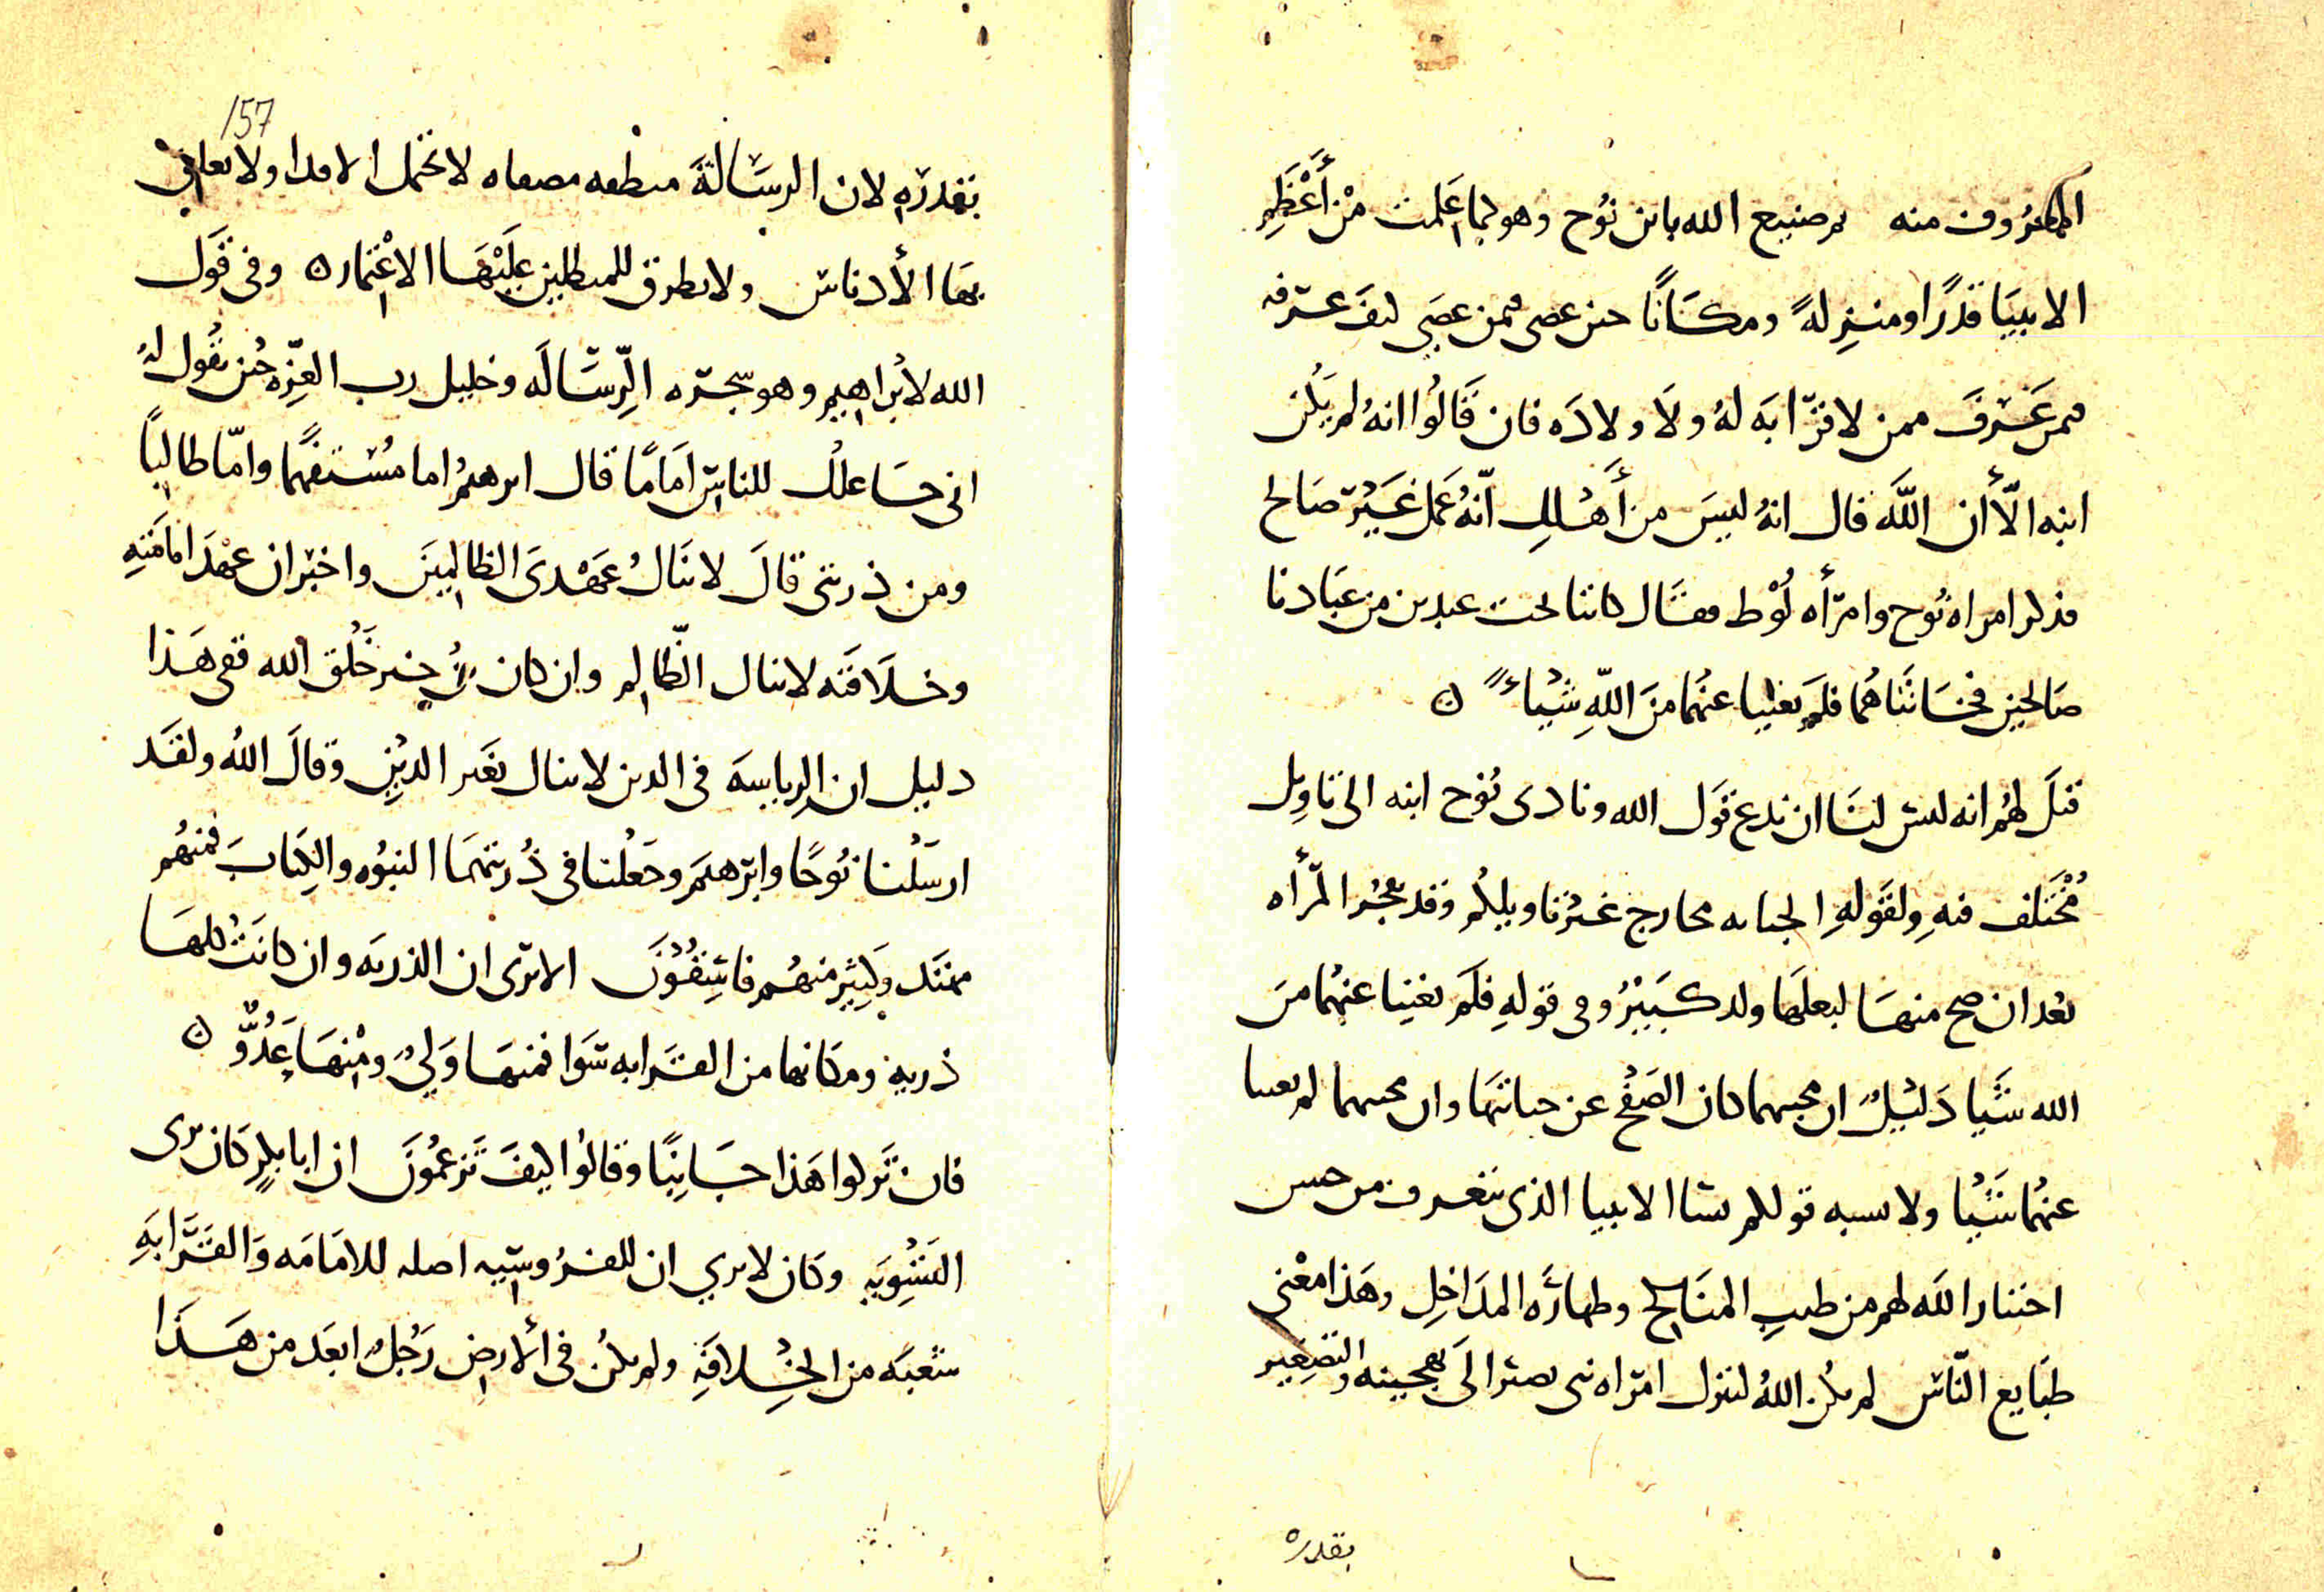 المعروف منه ثم صنيع الله بابن نوح وهو كما علمت من أعظم
الانبيا قدرا ومنزلة ومكانا حين عصى فيمن عصى كيف غرقه
فيمن غرق ممن لا قرابه له ولا ولاده فان قالوا انه لم يكن
ابنه الا أن الله قال انه ليس من أهلك انه عمل غير صالح
فذكر امراة نوح وامرأه لوط فقال كانتا تحت عبدين من عبادنا
صالحين فخانتاهما فلم يغنيا عنهما من الله شيئا
قيل لهم انه ليس لنا ان ندع قول الله ونادى نوح ابنه الى تاويل
مختلف فيه ولقوله الخيانه مخارج غير تاويلكم وقد تفجر المرأه
بعد ان صح منها لبعلها ولد كبير وفي قوله فلم يغنيا عنهما من
الله شيا دليل ان كان الصفح عن خيانتهما وان لم يغنيا
عنهما شيئا ولا يشبه قولكم الانبيا الذي نعرف من حسن
اختيار الله لهم من طيب المناكح وطهارة المداخل وهذا معنى
طبايع الناس لم يكن الله لينزل امراه نبي تصير الى تهجينه والتصغير
بقدره
157
بقدره لان الرسالة مصفاه لا تحتمل ولا
بها الأدناس ولا تطرق للمبطلين عليها الاغتمار وفي قول
الله لابراهيم وهو شجره الرساله وخليل رب العزه حين يقول له
اني جاعلك للناس اماما قال ابرهيم اما مستفهما واما طالبا
ومن ذريتى قال لا ينال عهدى الظالمين واخبر ان عهد امامته
وخلافته لا ينال الظالم وان كان من خير خلق الله ففى هذا
دليل ان الرياسه في الدين لا تنال بغير الدين وقال الله ولقد
ارسلنا نوحا وابرهيم وجعلنا في ذريتهما النبوه والكتاب فمنهم
مهتد وكثير منهم فاسقون الا ترى ان الذريه وان كانت كلها
ذرية ومكانها من القرابه سوا فمنها ولي ومنها عدو
فان تركوا هذا جانبا وقالوا كيف تزعمون ان ابا بكر كان يرى
التسويه وكان لا يري ان للقروشيه اصلا للامامه والقرابه
شعبه من الخلافة ولم يكن في الأرض رجل ابعد من هذا